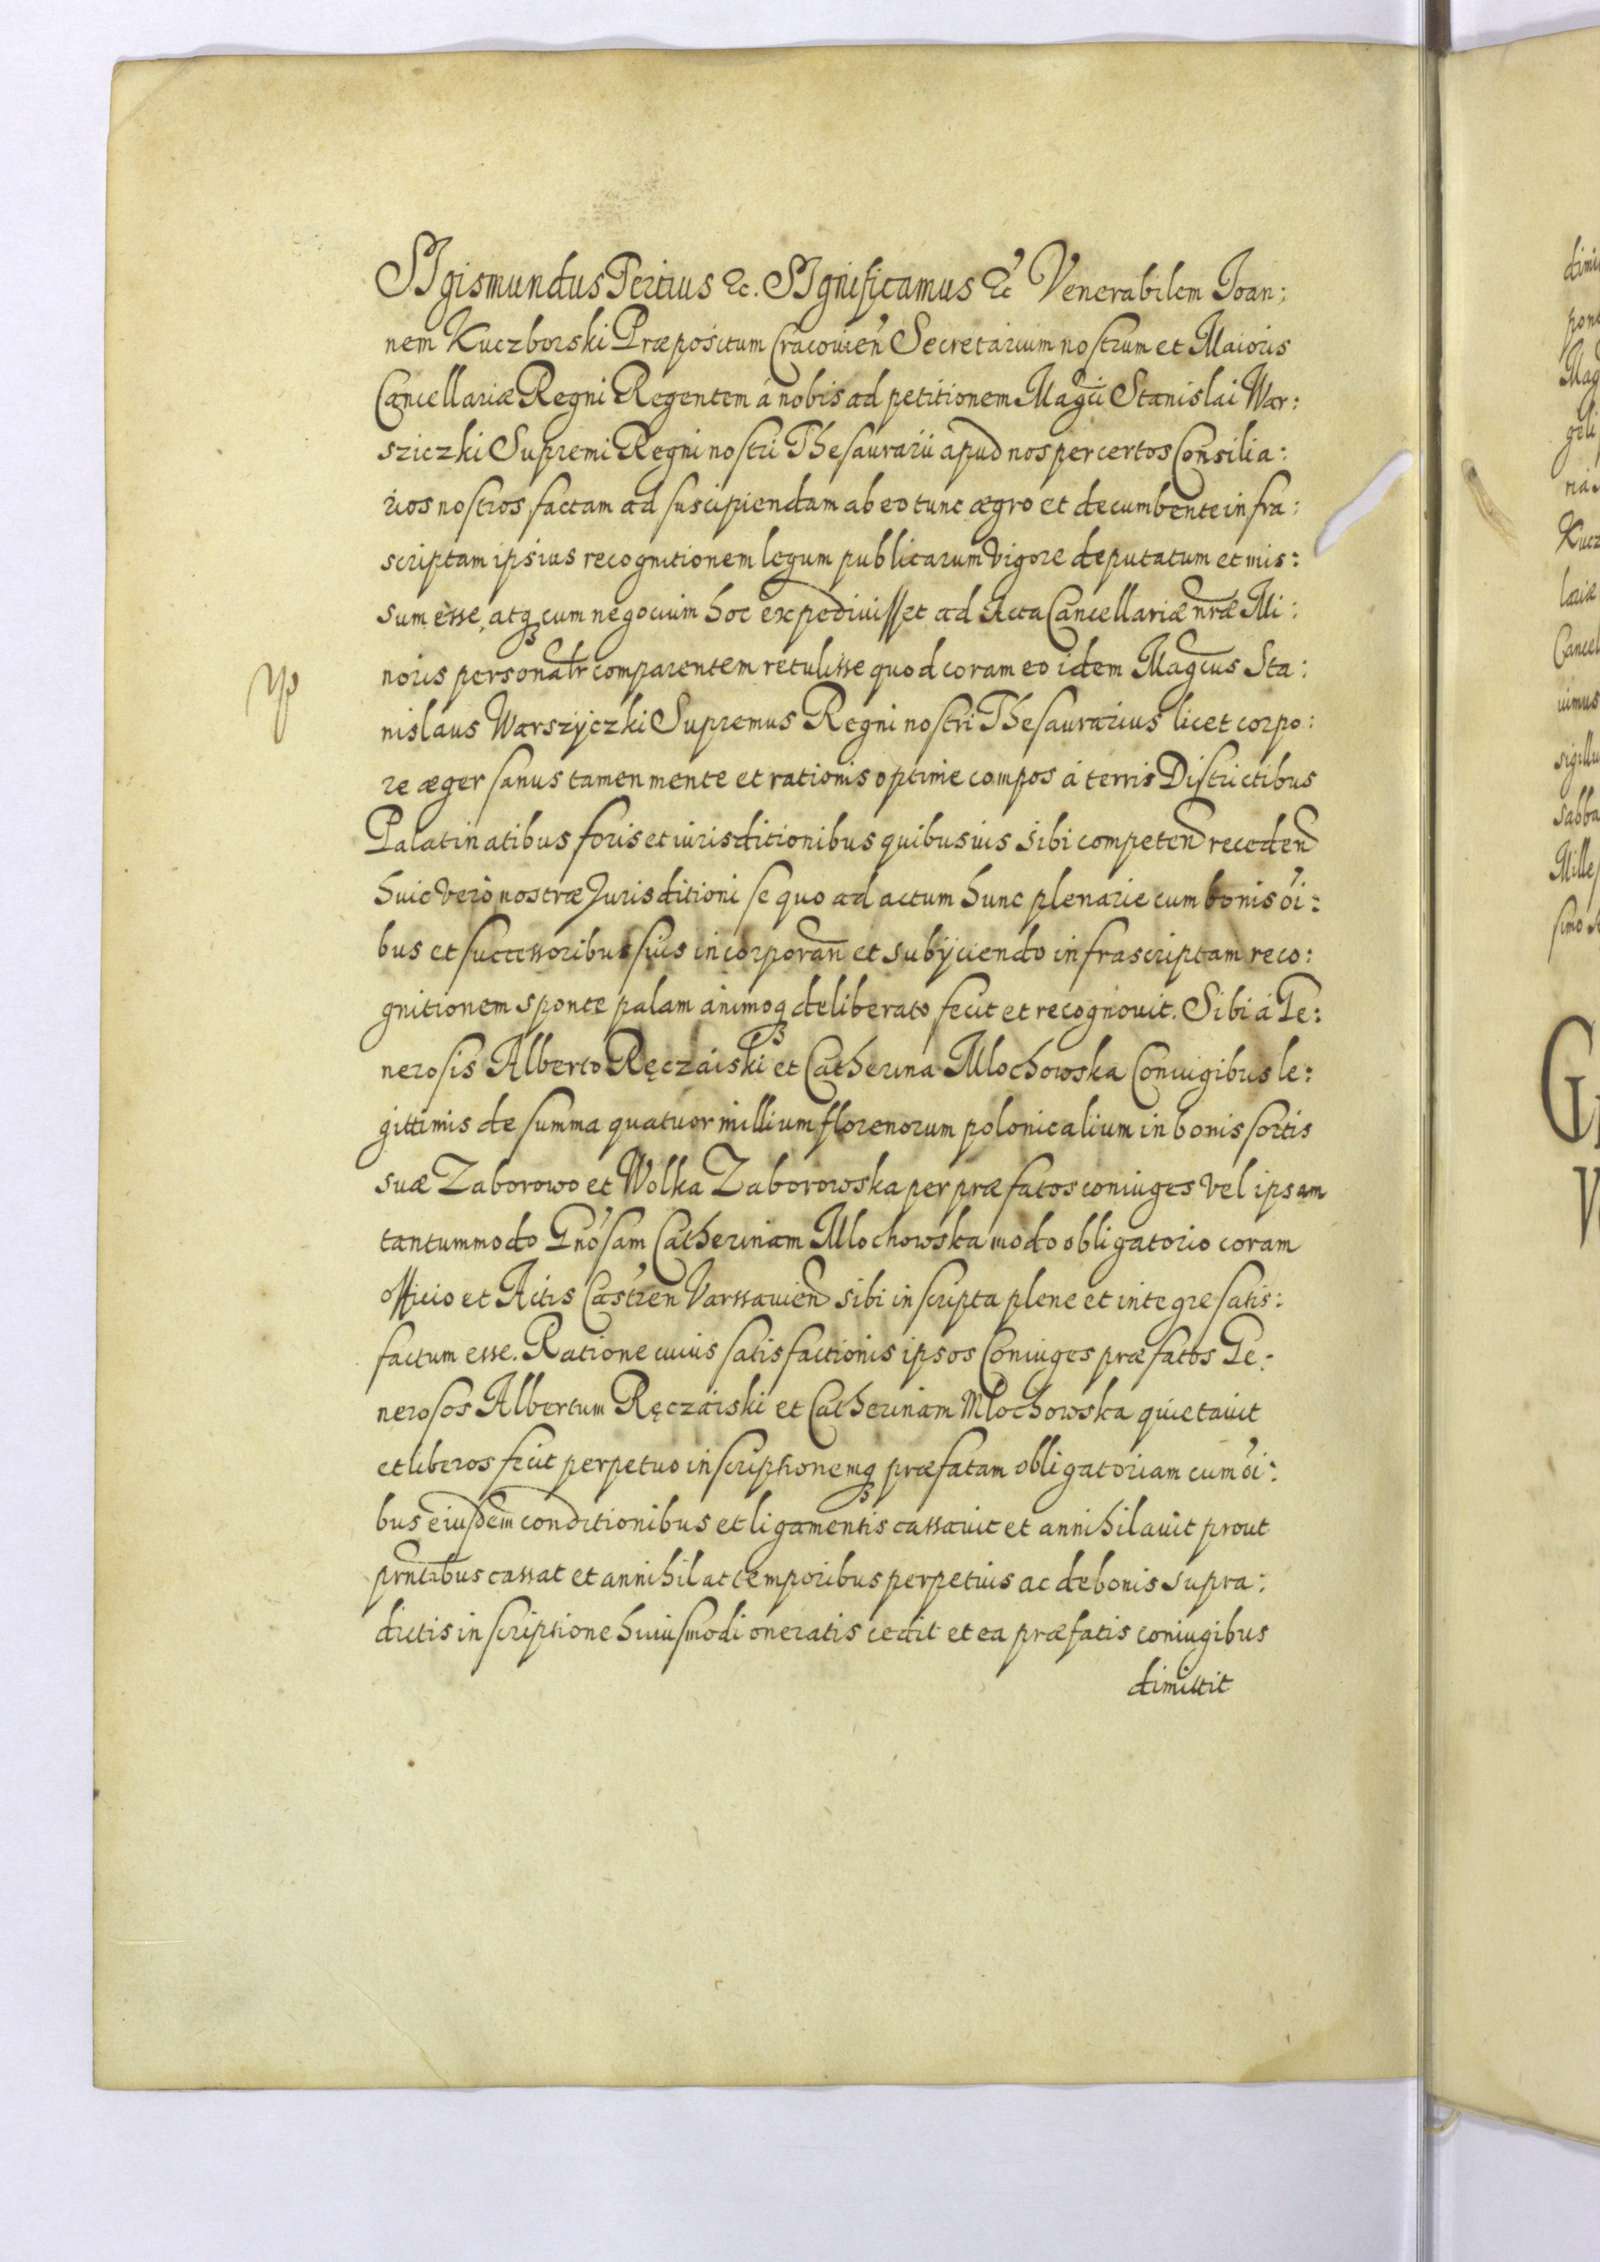 SIgismundus Tertius &c. SIgnificamus &c Venerabilem Ioan:
nem Kuczborski Præpositum Cracouien Secretarium nostrum et Maioris
Cancellariæ Regni Regentem á nobis ad petitionem Magci Stanislai War:
sziczki Supremi Regni nostri Thesaurarii apud nos per certos Consilia:
rios nostros factam ad suscipiendam ab eo tunc ægro et decumbente infra:
scriptam ipsius recognitionem legum publicarum vigore deputatum et mis:
sum esse, atq cum negocium hoc expediuisset ad Acta Cancellariæ nræ Mi:
noris personalr comparentem retulisse quod coram eo idem Magcus Sta:
nislaus Warszÿczki Supremus Regni nostri Thesaurarius licet corpo:
re æger sanus tamen mente et rationis optime compos á terris Districtibus
Palatinatibus foris et iurisditionibus quibusuis sibi competen receden
huic vero nostræ Jurisditioni se quo ad actum hunc plenarie cum bonis oi:
bus et successoribus suis incorporan et subÿciendo infrascriptam reco:
gnitionem sponte palam animoq deliberato fecit et recognouit. Sibi á Ge:
nerosis Alberto Ręczaiski et Catherina Mlochowska Coniugibus le:
gittimis de summa quatuor millium florenorum polonicalium in bonis sortis
suæ Zaborowo et Wolka Zaborowska per præfatos coniuges vel ipsam
tantummodo Gnosam Catherinam Mlochowska modo obligatorio coram
officio et Actis Castren Varssauien sibi inscripta plene et integre satis:
factum esse. Ratione cuius satisfactionis ipsos Coniuges præfatos Ge:
nerosos Albertum Ręczaiski et Catherinam Mlochowska quietauit
et liberos fecit perpetuo inscriptionemq præfatam obligatoriam cum oi:
bus eiusdem conditionibus et ligamentis cassauit et annihilauit prout
prntibus cassat et annihilat temporibus perpetuis ac de bonis supra:
dictis inscriptione huiusmodi oneratis cedit et ea præfatis coniugibus
dimittit